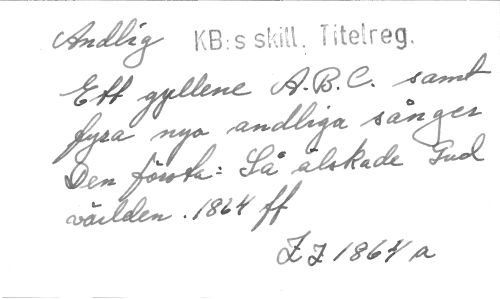 Andlig KB:s skill. Titelreg.
Ett gyllene A.B.C. samt
fyra nya andliga sånger
Den första: Så älskade Gud
världen. 1864 ff
1864 a